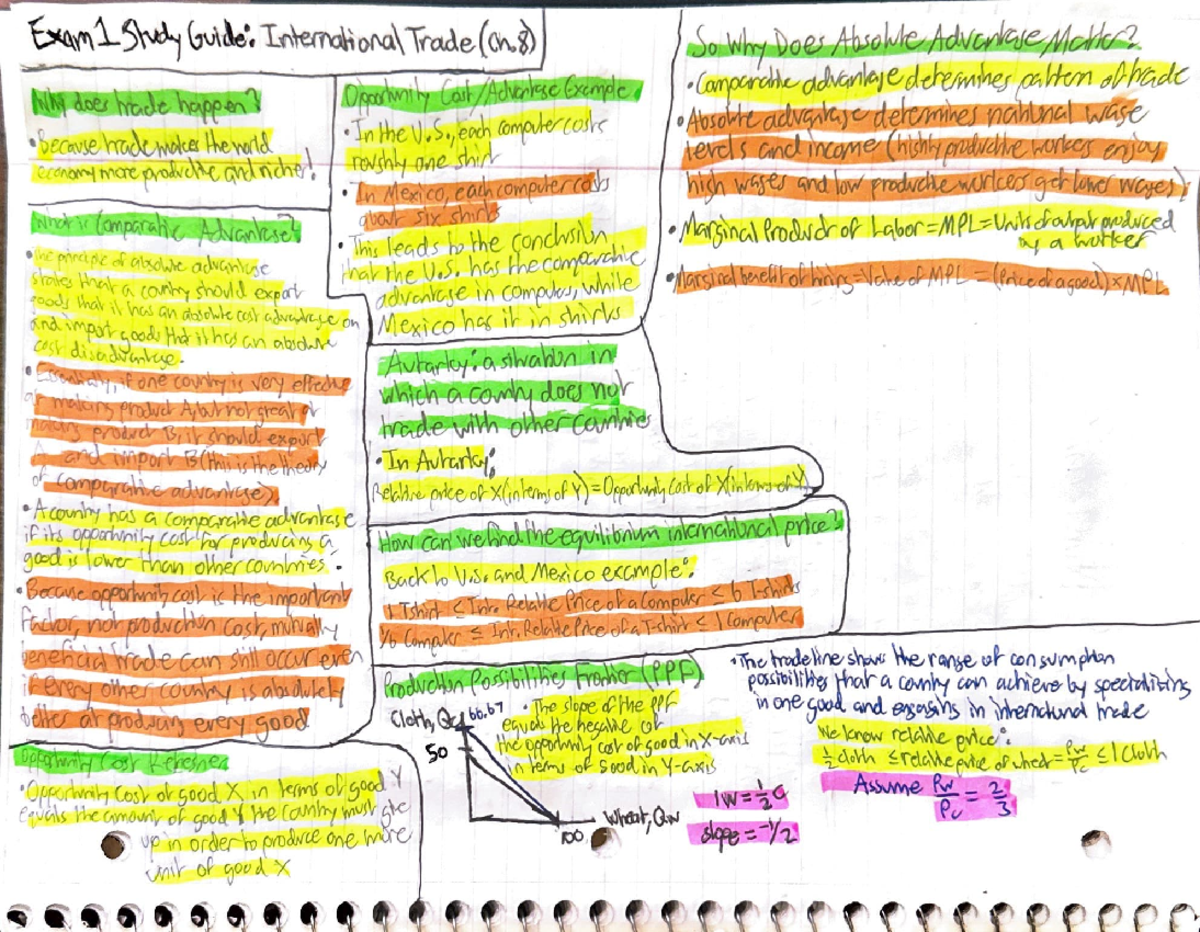 Exam 1 Study Guide: International Trade (Ch. 8)
Why does trade happen?
• Because trade makes the world
economy more productive and richer!
What is Comparative Advantage?
• The principle of absolute advantage
states that a country should export
goods that it has an absolute cost advantage on
and import goods that it has an absolute
cost disadvantage.
• Essentially, if one country is very effective
at making product A, but not great at
making product B, it should export
A and import B (this is the theory
of comparative advantage).
• A country has a comparative advantage
if its opportunity cost for producing a
good is lower than other countries.
• Because opportunity cost is the important
factor, not production cost, mutually
beneficial trade can still occur even
if every other country is absolutely
better at producing every good
Opportunity Cost Refresher
• Opportunity cost of good X in terms of good Y
equals the amount of good Y the country must give
up in order to produce one more
unit of good X
Opportunity Cost/Advantage Example
• In the U.S., each computer costs
roughly one shirt
• In Mexico, each computer costs
about six shirts
• This leads to the conclusion
that the U.S. has the comparative
advantage in computers, while
Mexico has it in shirts
Autarky: a situation in
which a country does not
trade with other countries
• In Autarky:
Relative price of X (in terms of Y) = Opportunity cost of X (in terms of Y)
How can we find the equilibrium international price?
Back to U.S. and Mexico example:
1 Tshirt ≤ Int. Relative Price of a Computer ≤ 6 T-shirts
1/6 Computer ≤ Int. Relative Price of a T-shirt ≤ 1 Computer
Production Possibilities Frontier (PPF)
Cloth, Qc
66.67
50
100
Wheat, Qw
• The slope of the PPF
equals the negative of
the opportunity cost of good in X-axis
in terms of good in Y-axis
1W = 1/2 C
slope = -1/2
So Why Does Absolute Advantage Matter?
• Comparative advantage determines pattern of trade
• Absolute advantage determines national wage
levels and income (highly productive workers enjoy
high wages and low productive workers get lower wages)
• Marginal Product of Labor = MPL = Units of output produced
by a worker
• Marginal benefit of hiring = Value of MPL = (Price of a good) × MPL
• The trade line shows the range of consumption
possibilities that a country can achieve by specializing
in one good and engaging in international trade
We know relative price:
1/2 cloth ≤ relative price of wheat = Pw/Pc ≤ 1 cloth
Assume Pw/Pc = 2/3